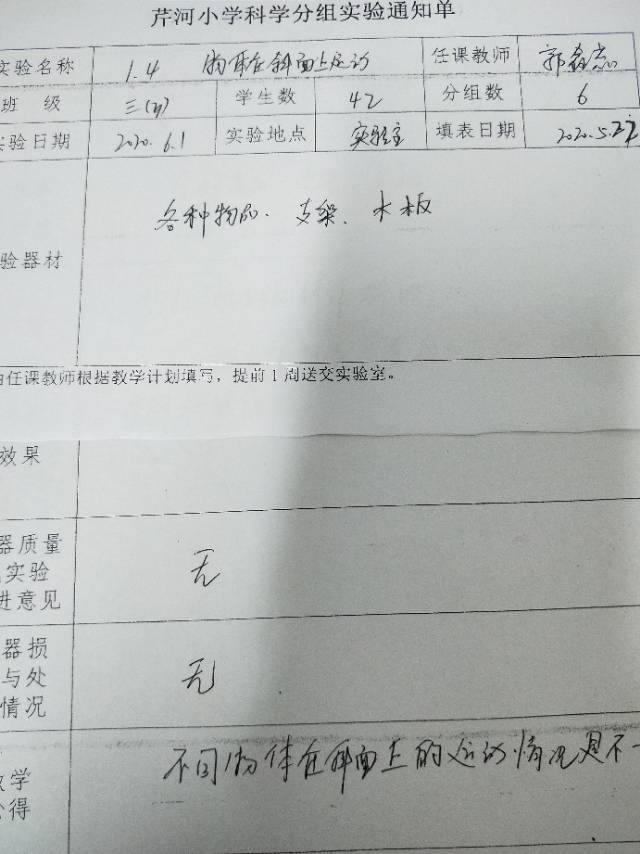 芹河小学科学分组实验通知单
实验名称 1.4 物体在斜面上运动 任课教师
班 级 三(3) 学生数 42 分组数 6
实验日期 2020.6.1 实验地点 实验室 填表日期 2020.5.25
各种物品、支架、木板
验器材
由任课教师根据教学计划填写，提前1周送交实验室。
效果
器质量
实验 无
进意见
器损
与处 无
情况
不同物体在斜面上的运动情况是不一
教学
心得